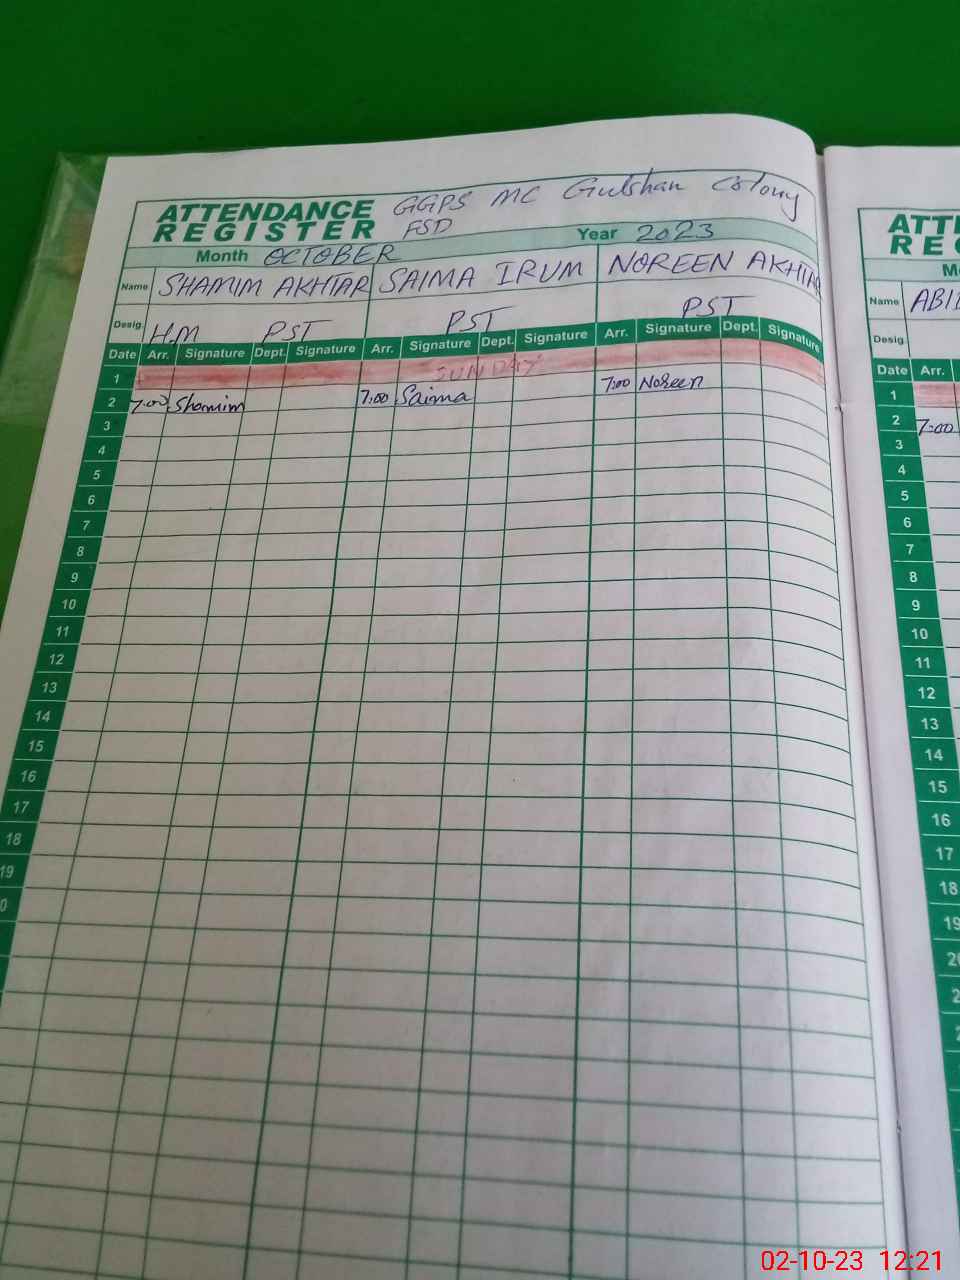 ATTENDANCE REGISTER GGPS MC Gulshan Colony FSD
Month OCTOBER Year 2023
Name SHAMIM AKHTAR SAIMA IRUM NOREEN AKHTAR
Desig. H.M PST PST PST
Date Arr. Signature Dept. Signature Arr. Signature Dept. Signature Arr. Signature Dept. Signature
1 SUNDAY
2 7:00 Shamim 7:00 Saima 7:00 Noreen
3
4
5
6
7
8
9
10
11
12
13
14
15
16
17
18
19
0
ATT
RE
M
Name ABI
Desig.
Date Arr.
1
2 7:00
3
4
5
6
7
8
9
10
11
12
13
14
15
16
17
18
19
2
2
2
02-10-23 12:21